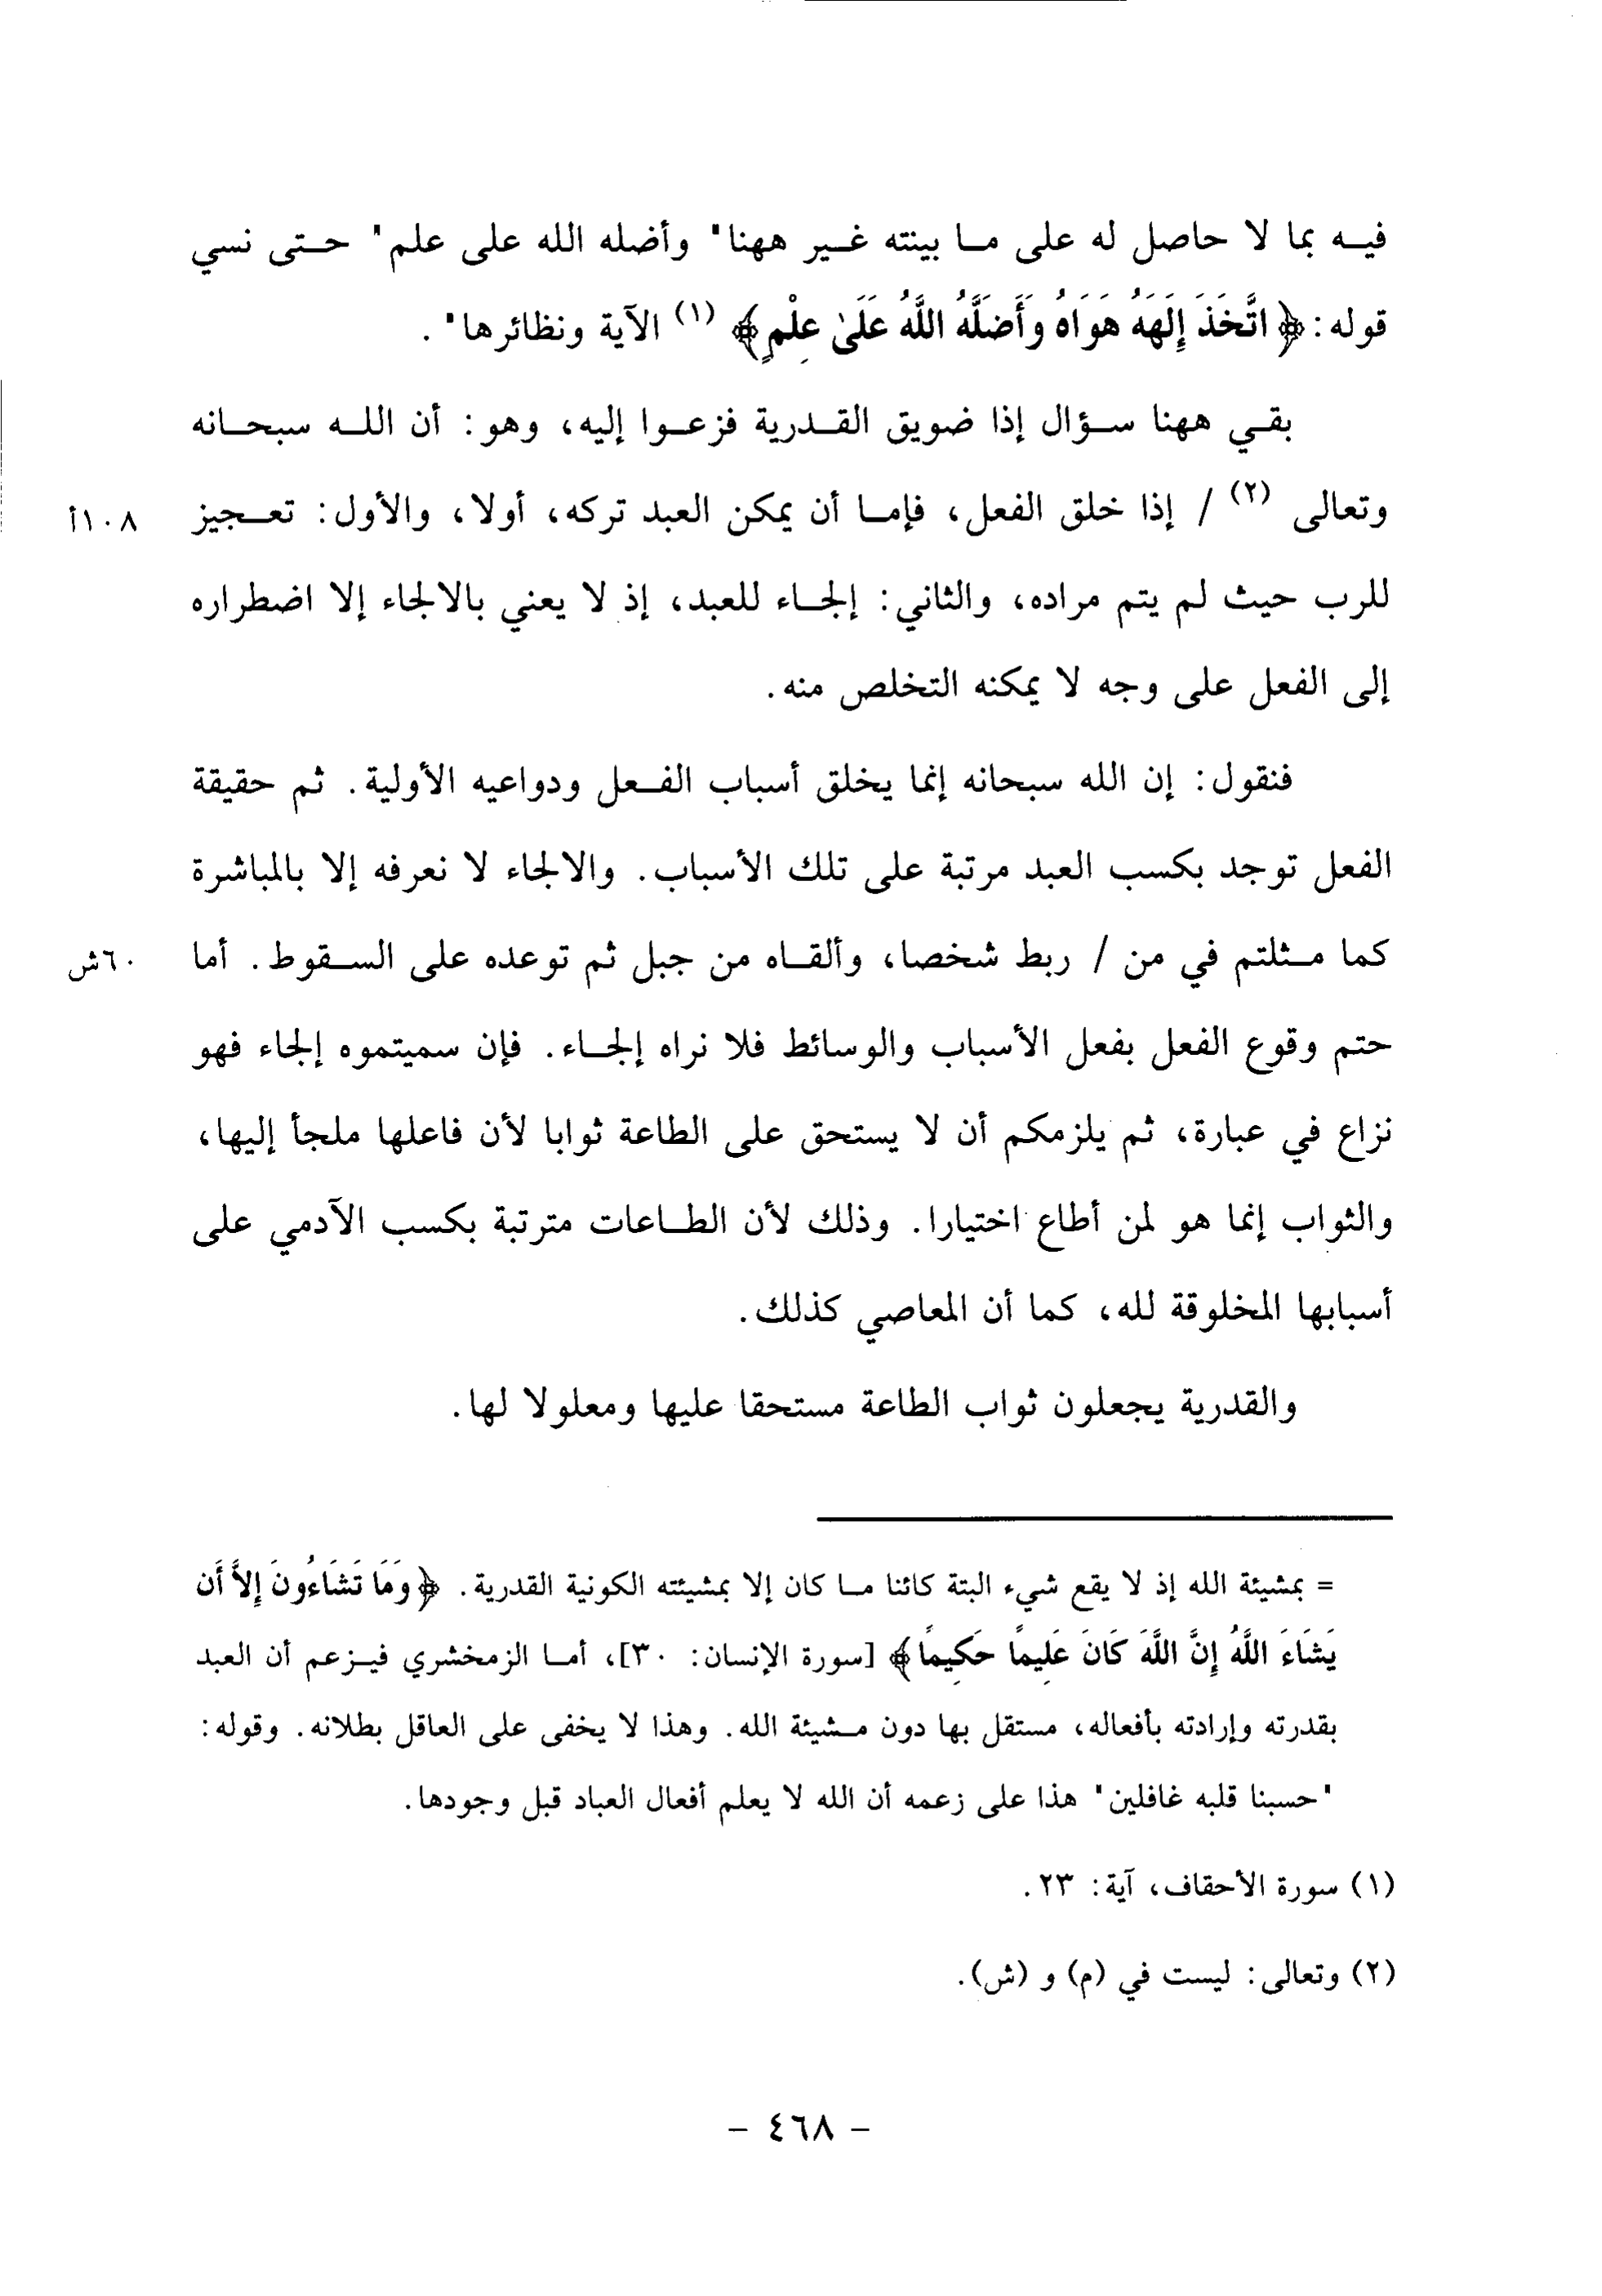 فيه بما لا حاصل له على ما بينته غير ههنا" وأضله الله على علم" حتى نسي
قوله: ﴿اتَّخَذَ إِلَهَهُ هَوَاهُ وَأَضَلَّهُ اللَّهُ عَلَىٰ عِلْمٍ﴾ (١) الآية ونظائرها".
بقي ههنا سؤال إذا ضويق القدرية فزعوا إليه، وهو: أن الله سبحانه
وتعالى (٢) / إذا خلق الفعل، فإما أن يمكن العبد تركه، أولا، والأول: تعجيز ١٠٨أ
للرب حيث لم يتم مراده، والثاني: إلجاء للعبد، إذ لا يعني بالالجاء إلا اضطراره
إلى الفعل على وجه لا يمكنه التخلص منه.
فنقول: إن الله سبحانه إنما يخلق أسباب الفعل ودواعيه الأولية. ثم حقيقة
الفعل توجد بكسب العبد مرتبة على تلك الأسباب. والالجاء لا نعرفه إلا بالمباشرة
كما مثلتم في من / ربط شخصا، وألقاه من جبل ثم توعده على السقوط. أما ٦٠ش
حتم وقوع الفعل بفعل الأسباب والوسائط فلا نراه إلجاء. فإن سميتموه إلجاء فهو
نزاع في عبارة، ثم يلزمكم أن لا يستحق على الطاعة ثوابا لأن فاعلها ملجأ إليها،
والثواب إنما هو لمن أطاع اختيارا. وذلك لأن الطاعات مترتبة بكسب الآدمي على
أسبابها المخلوقة لله، كما أن المعاصي كذلك.
والقدرية يجعلون ثواب الطاعة مستحقا عليها ومعلولا لها.
= بمشيئة الله إذ لا يقع شيء البتة كائنا ما كان إلا بمشيئته الكونية القدرية. ﴿وَمَا تَشَاءُونَ إِلاَّ أَن
يَشَاءَ اللَّهُ إِنَّ اللَّهَ كَانَ عَلِيمًا حَكِيمًا﴾ [سورة الإنسان: ٣٠]، أما الزمخشري فيزعم أن العبد
بقدرته وإرادته بأفعاله، مستقل بها دون مشيئة الله. وهذا لا يخفى على العاقل بطلانه. وقوله:
"حسبنا قلبه غافلين" هذا على زعمه أن الله لا يعلم أفعال العباد قبل وجودها.
(١) سورة الأحقاف، آية: ٢٣.
(٢) وتعالى: ليست في (م) و (ش).
- ٤٦٨ -